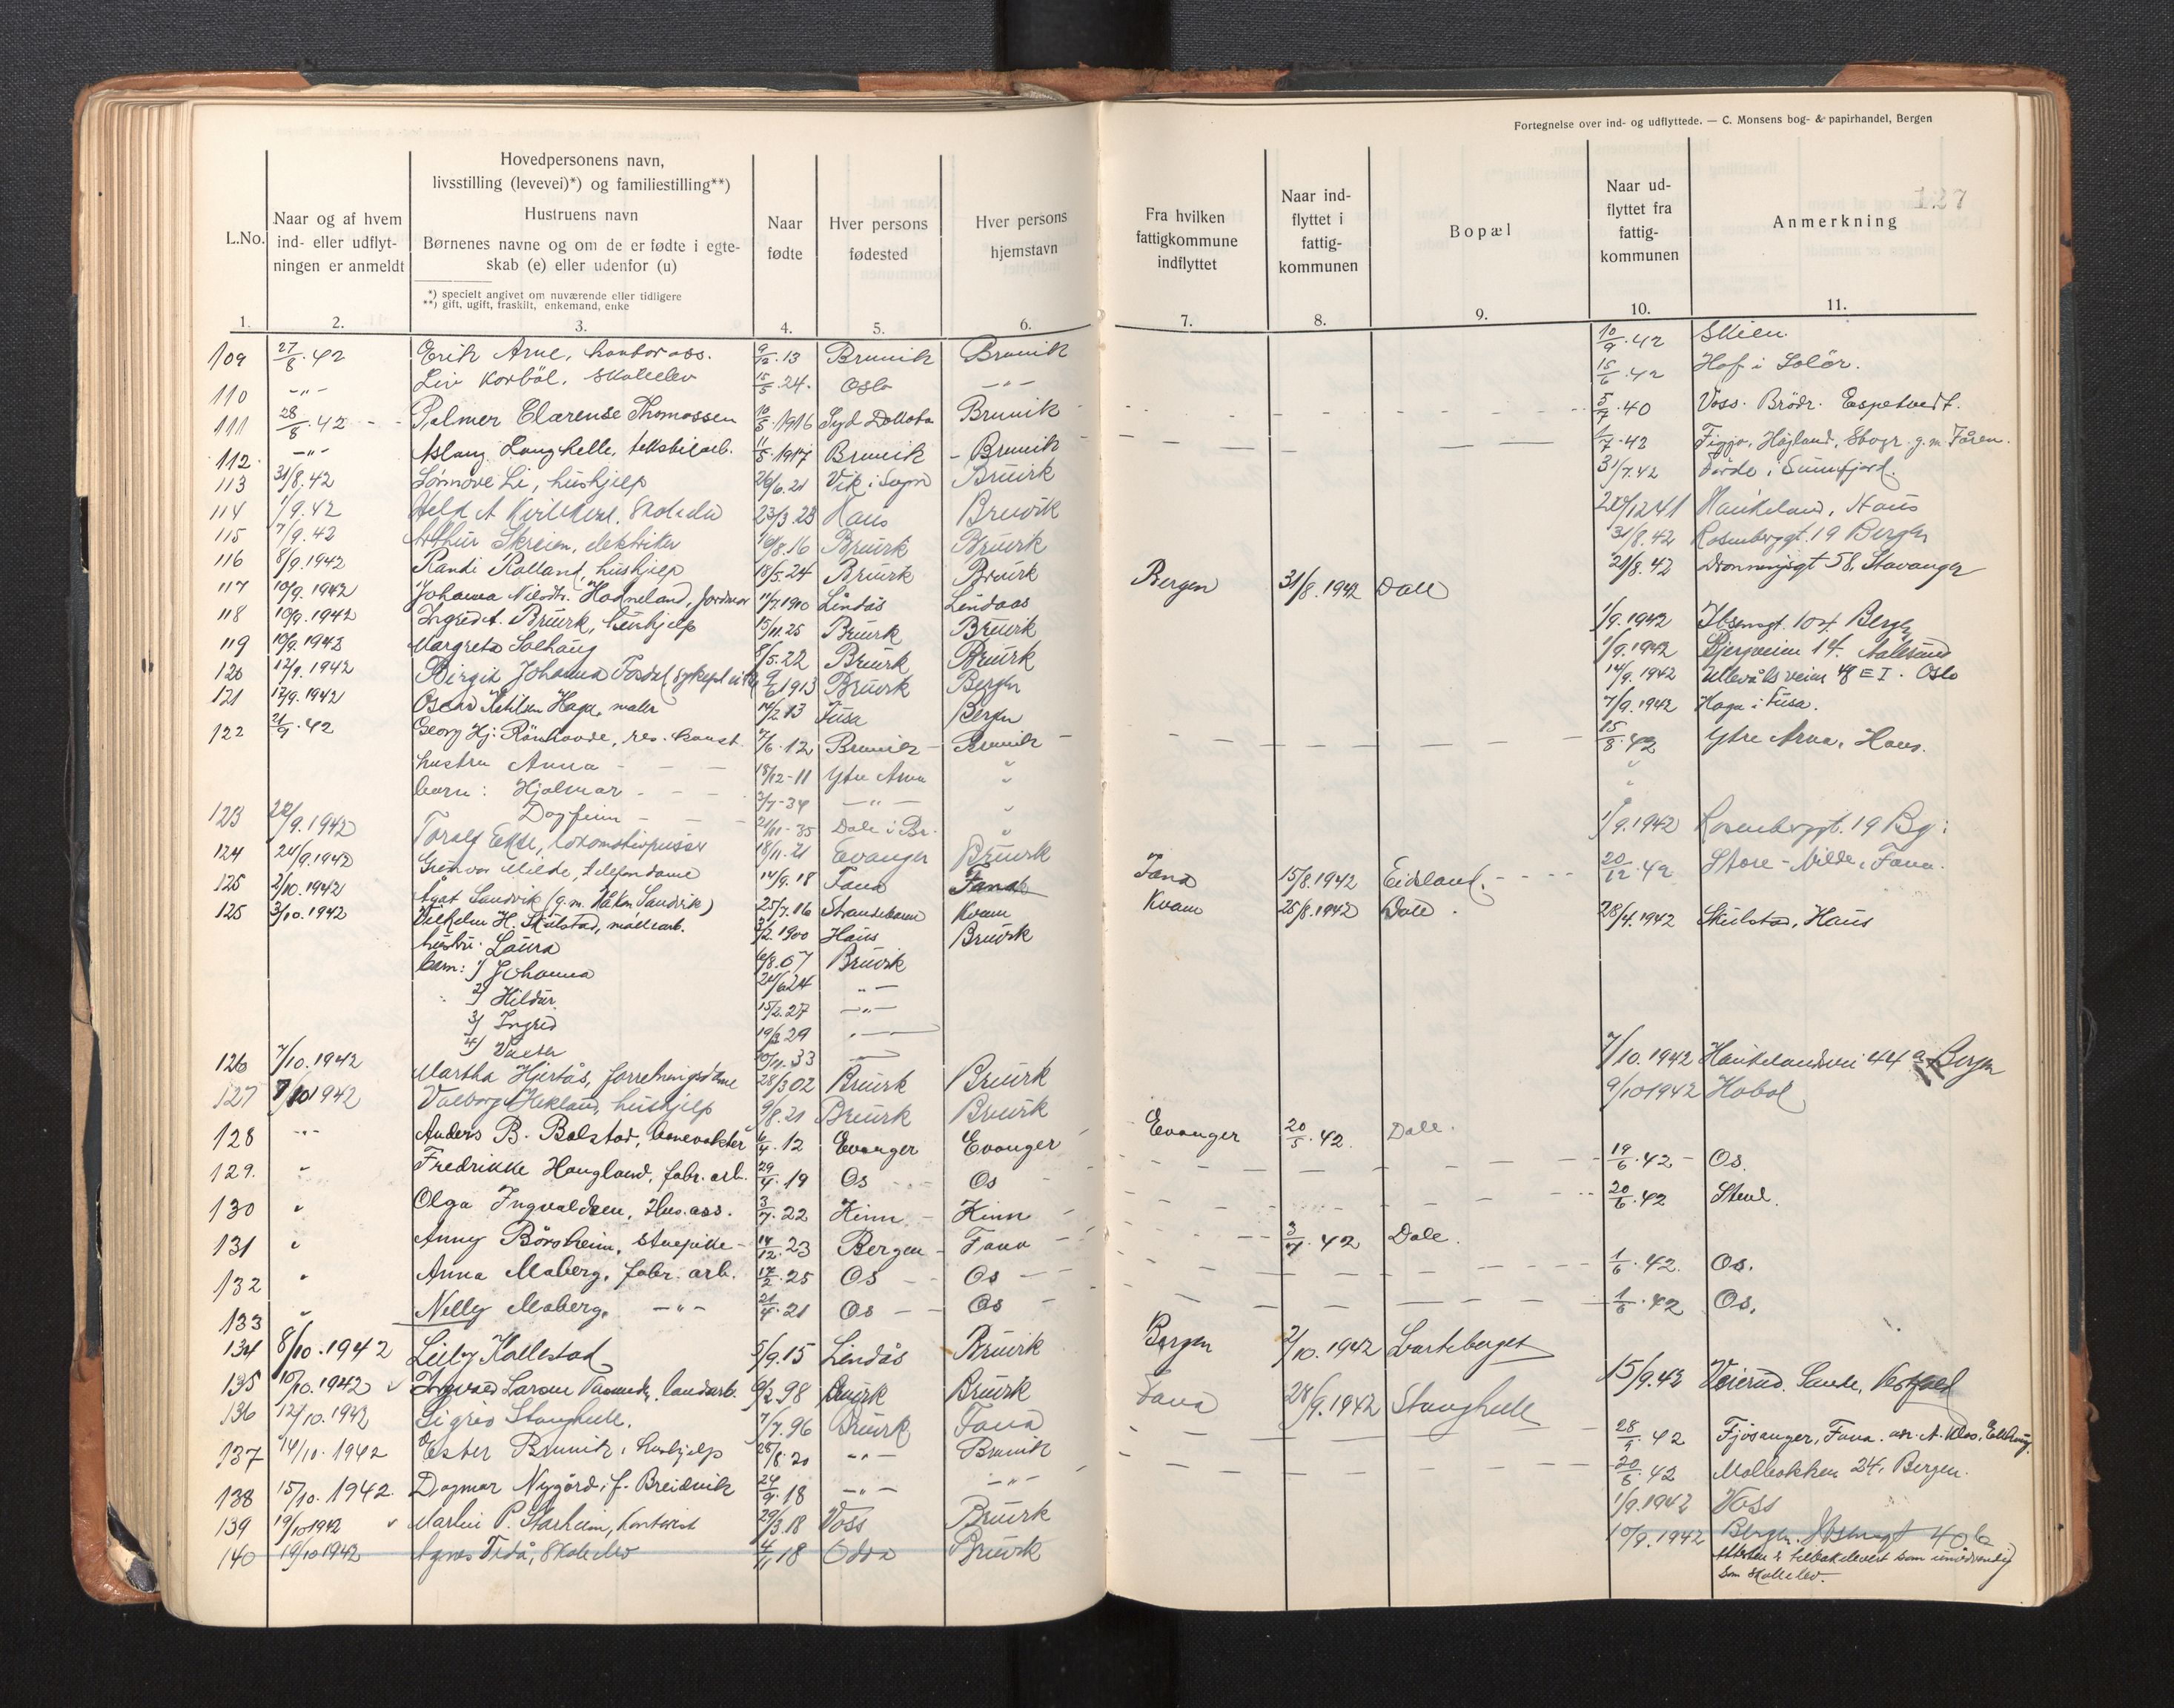 Fortegnelse over ind- og udflyttede. — C. Monsens bog- & papirhandel, Bergen
127
L.No.
Naar og af hvem ind- eller udflyt- ningen er anmeldt
Hovedpersonens navn,
livsstilling (levevei)*) og familiestilling**)
Hustruens navn
Børnenes navne og om de er fødte i egte-
skab (e) eller udenfor (u)
*) specielt angivet om nuværende eller tidligere
**) gift, ugift, fraskilt, enkemand, enke
Naar fødte
Hver persons fødested
Hver persons hjemstavn
Fra hvilken fattigkommune indflyttet
Naar ind- flyttet i fattig- kommunen
Bopæl
Naar ud- flyttet fra fattig- kommunen
Anmerkning
1. 2. 3. 4. 5. 6. 7. 8. 9. 10. 11.
109 27/8.42 Erik Arne, kontorass. 9/12.13 Bruvik Bruvik 10/9.42 Skien
110 -"- Liv Korbøl, skoleelev 15/5.24 Oslo -"- 15/6.42 Hof i Solør.
111 28/8.42 Palmer Clarense Thomassen 10/5.1916 Syd Dakota Bruvik 5/7.40 Voss. Brödr. Espetvedt.
112 -"- Aslaug Langhelle, tekstilarb. 11/5.1917 Bruvik Bruvik 1/7.42 Figgjo, Høyland,
113 31/8.42 Li, hushjelp 26/6.21 Vik i Sogn Bruvik 31/7.42 Førde i Sunnfjord.
114 1/9.42 23/3.23 Haus Bruvik 20/12 41 Haukeland, Haus
115 7/9.42 Arthur Skreien, elektriker 16/8.16 Bruvik Bruvik 31/8.42 Rosenberggt. 19 Bergen
116 8/9.1942 Randi Rolland, hushjelp 18/5.24 Bruvik Bruvik 21/8.42 Dronningsgt 58. Stavanger
117 10/9.1942 Johanna Nilsdtr. Hodneland, jordmor 11/7.1910 Lindås Lindaas Bergen 31/8.1942 Dale
118 10/9.1942 Ingrid A. Bruvik, hushjelp 15/11.25 Bruvik Bruvik 1/9.1942 Ibsensgt. 104 Bergen
119 10/9.1942 Margreta Solhaug 8/5.22 Bruvik Bruvik 1/9.1942 14. Aalesund
120 12/9.1942 Birgit Johanna Fosdal 9/6 1913 Bruvik Bergen 14/9.1942 Ullevålsveien Oslo
121 12/9.1942 Oscar Ketilsen Haga, maler 14/2.13 Fusa Bergen 7/9.1942 Haga i Fusa.
122 21/9.42 Georg Hj. Rönhovde, res. konst. 7/6.12 Bruvik Bruvik 15/8.42 Ytre Arna, Haus.
hustru Anna 18/12-11 Ytre Arna "
barn: Hjalmar 2/7-34 -"- "
Dagfinn 21/11-35 Dale i Br. "
123 22/9.1942 Toralf Ekse, lokomotivpusser 18/11.21 Evanger Bruvik 1/9.1942 Rosenberggt. 19 Bg:
124 24/9.1942 Milde, telefondame 14/9.18 Fana Fana Fana 15/8.1942 Eidsland. 20/12.42 Store-Milde, Fana.
125 2/10.1942 Ågot Sandvik (g.m. Håkon Sandvik) 25/7.16 Strandebarm Kvam Kvam 25/8.1942 Dale.
125 3/10.1942 Vilhelm H. Skulstad, møllearb. 3/2.1900 Haus Bruvik 28/4.1942 Skulstad, Haus
hustru: Laura 6/8.07 Bruvik
barn: 1) Johanna 24/6 24 -"-
2) Hildur 15/2.27 -"-
3) Ingrid 19/3 29
4) 10/11.33
126 7/10.1942 Martha Hjertås, forretningsdame 28/3 02 Bruvik Bruvik 7/10.1942 Haukelandsvei 44 a Bergen
127 7/10 1942 Valborg Hekland, hushjelp 9/8.21 Bruvik Bruvik 9/10 1942 Hobøl
128 -"- Anders B. Bolstad, banevokter 6/4.12 Evanger Evanger Evanger 20/5.42. Dale.
129. " Fredrikke Haugland, fabr. arb. 29/4.19 Os Os 19/6.42 Os.
130 " Olga Ingvaldsen, Hus.ass. 3/7.22 Kinn Kinn 20/6.42
131 " Anny Börsheim, stuepike 14/12.23 Bergen Fana 3/7.42 Dale.
132 " Anna Moberg, fabr. arb. 17/2.25 Os Os 1/6.42. Os.
133 " Nelly Moberg, -"- 21/4.21 Os Os 1/6.42 Os.
134 8/10.1942 Lilly Kallestad 5/9.15 Lindås Bruvik Bergen 2/10.1942
135 10/10.1942 Ingvald Larsen landarb. 9/2 98 Bruvik Bruvik 15/9.42 Sande, Vestfold
136 12/10.1942 Sigrid Stanghelle. 7/7.96 Bruvik Fana Fana 28/9.1942 Stanghelle
137 14/10.1942 Ester Bruvik, hushjelp 28/8.20 -"- Bruvik 28/9.42 Fjøsanger, Fana.
138 15/10.1942. Dagmar Nygård, f. Breidvik 24/9.18 -"- -"- 20/6.42 Møllebakken 24, Bergen.
139 19/10 1942 Martin P. kontorist 29/3.18 Voss Bruvik 1/9.1942 Voss
140 19/10 1942 Agnes skoleelev 4/11 18 Odda Bruvik 10/9.1942 Bergen, 40 b
er tilbakelevert som unødvendig
som skoleelev.